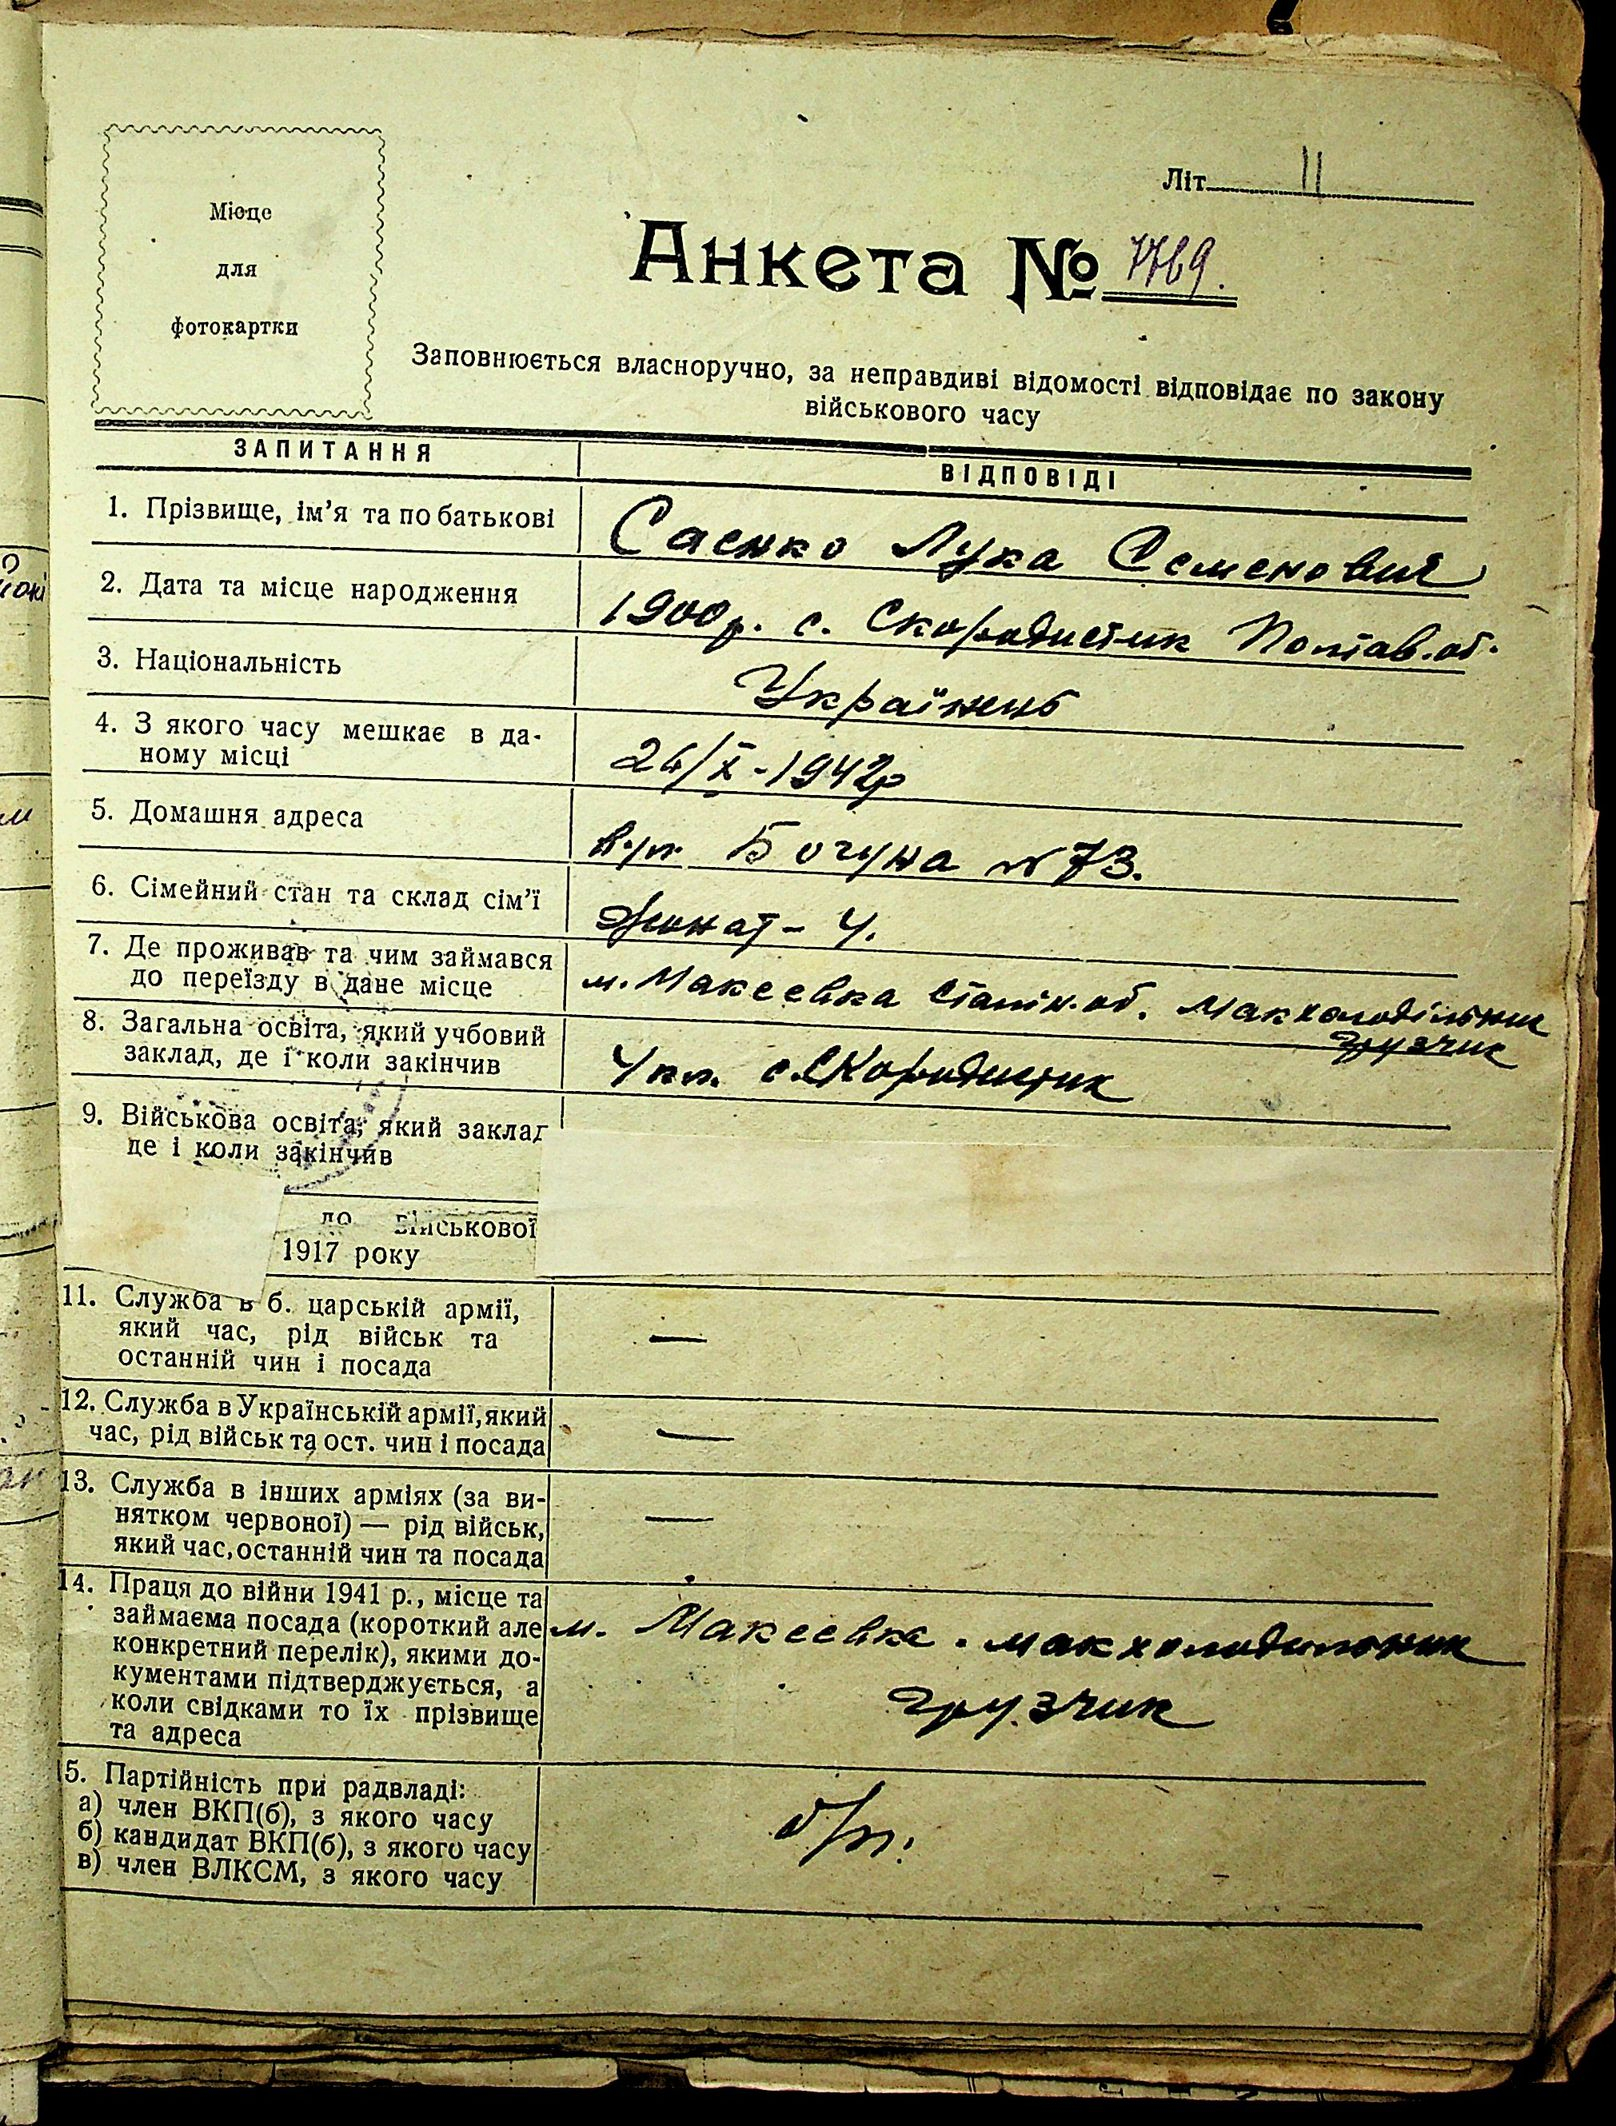 Місце
для
фотокартки
Літ. 11
Анкета № 7769.
Заповнюється власноручно, за неправдиві відомості відповідає по закону
військового часу
ЗАПИТАННЯ
ВІДПОВІДІ
1. Прізвище, ім’я та по батькові
Саєнко Лука Семенович
2. Дата та місце народження
1900р. с. Скородистик Полтав. об.
3. Національність
Українець
4. З якого часу мешкає в да-
ному місці
26/X-1942р
5. Домашня адреса
вул. Богуна № 73.
6. Сімейний стан та склад сім’ї
Жонат – 4.
7. Де проживав та чим займався
до переїзду в дане місце
м. Макеевка Сталін. об. Макхолодільник
грузчик
8. Загальна освіта, який учбовий
заклад, де і коли закінчив
4 кл. с. Скородистик
9. Військова освіта, який заклад
де і коли закінчив
до військової
1917 року
11. Служба в б. царській армії,
який час, рід військ та
останній чин і посада
—
12. Служба в Українській армії, який
час, рід військ та ост. чин і посада
—
13. Служба в інших арміях (за ви-
нятком червоної) — рід військ,
який час, останній чин та посада
—
14. Праця до війни 1941 р., місце та
займаєма посада (короткий але
конкретний перелік), якими до-
кументами підтверджується, а
коли свідками то їх прізвище
та адреса
м. Макеевка. макхолодильник
грузчик
15. Партійність при радвладі:
а) член ВКП(б), з якого часу
б) кандидат ВКП(б), з якого часу
в) член ВЛКСМ, з якого часу
б/п.